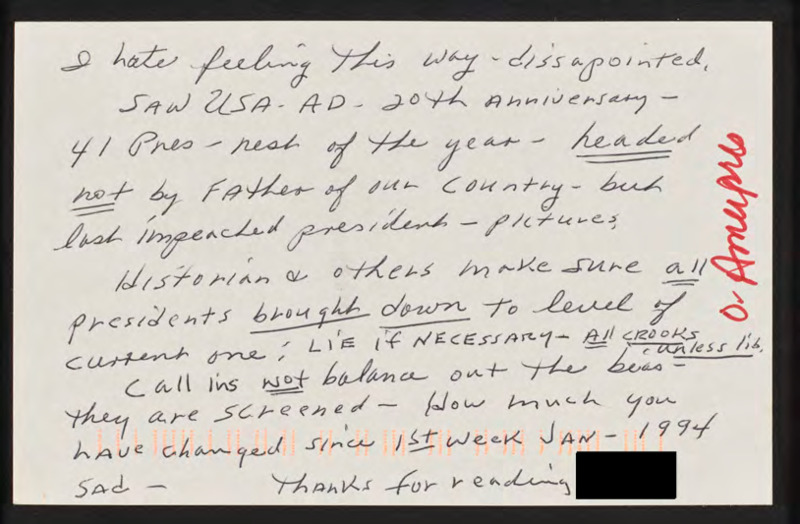 I hate feeling this way - dissapointed,
SAW USA - AD - 20th Anniversary -
41 Pres - rest of the year - headed
not by Father of our Country - but
last impeached president - pictures,
Historian & others make sure all
presidents brought down to level of
current one; LIE if NECESSARY - All CROOKS
unless lib.
Call ins not balance out the bias -
they are screened - How much you
have changed since 1st week JAN - 1994
SAd - Thanks for reading